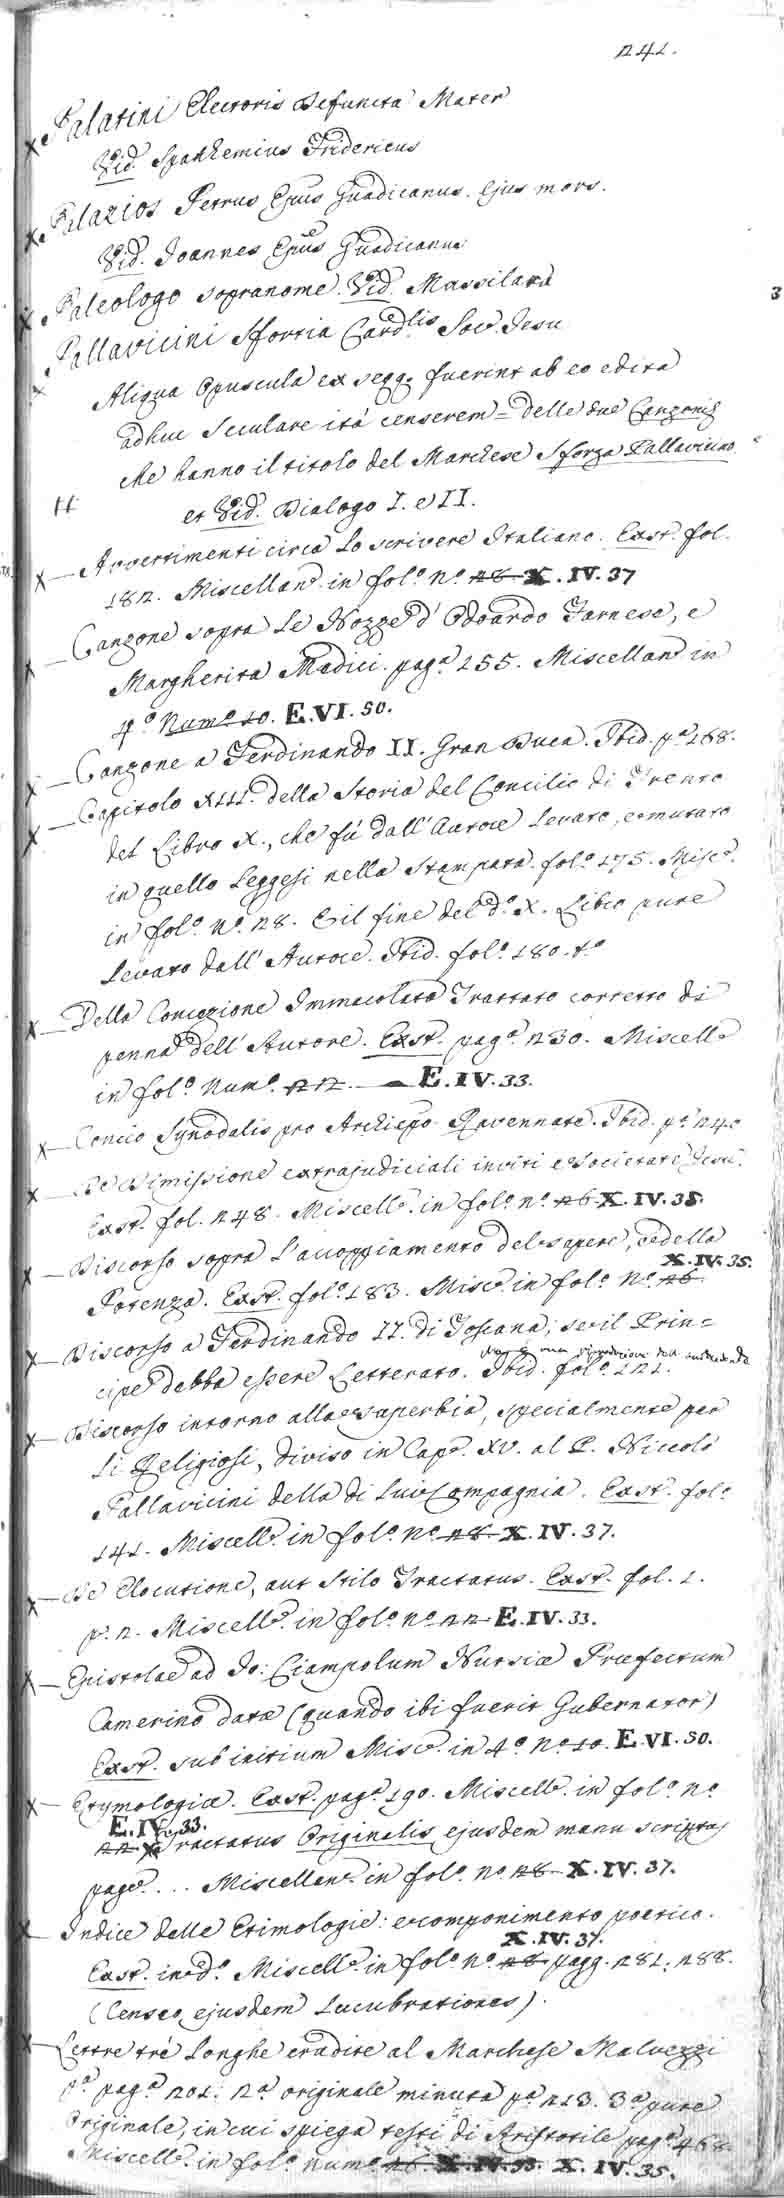 241.
Palatini Electoris Defuncta Mater
Vid. Spanhemius Fridericus
Palazios Petrus Epus Guadicanus. ejus mors.
Vid. Joannes Epus Guadicanus
Paleologo sopranome. Vid. Massilara
Pallavicini Sfortia Cardlis Soc. Jesu
Aliqua Opuscula ex seqq. fuerint ab eo edita
adhuc seculare ità censerem = delle due Canzoni
che hanno il titolo del Marchese Sforza Pallavicino
et Vid. Dialogo I. e II.
Avvertimenti circa lo scrivere Italiano. Exst. fol.
182. Miscellan. in fol.º n.º 28 X. IV. 37
Canzone sopra le Nozze d'Odoardo Farnese, e
Margherita Medici. pag.ª 155. Miscellan. in
4.º Num.º 10. E. VI. 50.
Canzone a Ferdinando II. Gran Duca. Ibid. p.ª 168.
Capitolo XIII. della Storia del Concilio di Trento
del Libro X., che fù dall'Autore levato, e mutato
in quello leggesi nella Stampata. fol.º 175. Misc.
in fol.º n.º 28. E il fine del d.º X. Libro pure
levato dall'Autore. Ibid. fol.º 180. t.º
Della Concezione Immacolata Trattato corretto di
penna dell'Autore. Exst. pag.ª 230. Miscell.
in fol.º Num.º 22. E. IV. 33.
Concio Synodalis pro Archiepo Ravennate. Ibid. p.ª 240
De Dimissione extrajudiciali inviti e Societate Jesu.
Exst. fol. 248. Miscell. in fol.º n.º 26 X. IV. 35.
Discorso sopra l'accoppiamento del sapere, e della
Potenza. Exst. fol.º 183. Misc. in fol.º n.º 26 X. IV. 35.
Discorso a Ferdinando II. di Toscana; se il Prin=
cipe debba essere Letterato. Ibid. fol.º 121.
Discorso intorno alla superbia, specialmente per
li Religiosi, diviso in Cap. XV. al P. Niccolò
Pallavicini della di lui Compagnia. Exst. fol.º
141. Miscell. in fol.º n.º 28 X. IV. 37.
De Elocutione, aut Stilo Tractatus. Exst. fol. 1.
p. 2. Miscell. in fol.º n.º 22 E. IV. 33.
Epistolae ad Jo: Ciampolum Nursiae Praefectum
Camerino datae (quando ibi fuerit Gubernator)
Exst. sub initium Misc. in 4.º n.º 10. E. VI. 50.
Etymologiae. Exst. pag.ª 190. Miscell. in fol.º n.º
22 E. IV. 33. Tractatus Originalis ejusdem manu scriptus
pag. .... Miscellan. in fol.º n.º 28 X. IV. 37.
Indice delle Etimologie: e componimento poetico.
Exst. in d.º Miscell. in fol.º n.º 28 X. IV. 37. pagg. 281. 288.
(Censeo ejusdem lucubrationes).
Lettre trè longhe erudite al Marchese Malvezzi
p.ª pag.ª 201. 2.ª originale minuta p.ª 213. 3.ª pure
Originale, in cui spiega testi di Aristotile pag.ª 468.
Miscell. in fol.º num.º 26. X. IV. 35.